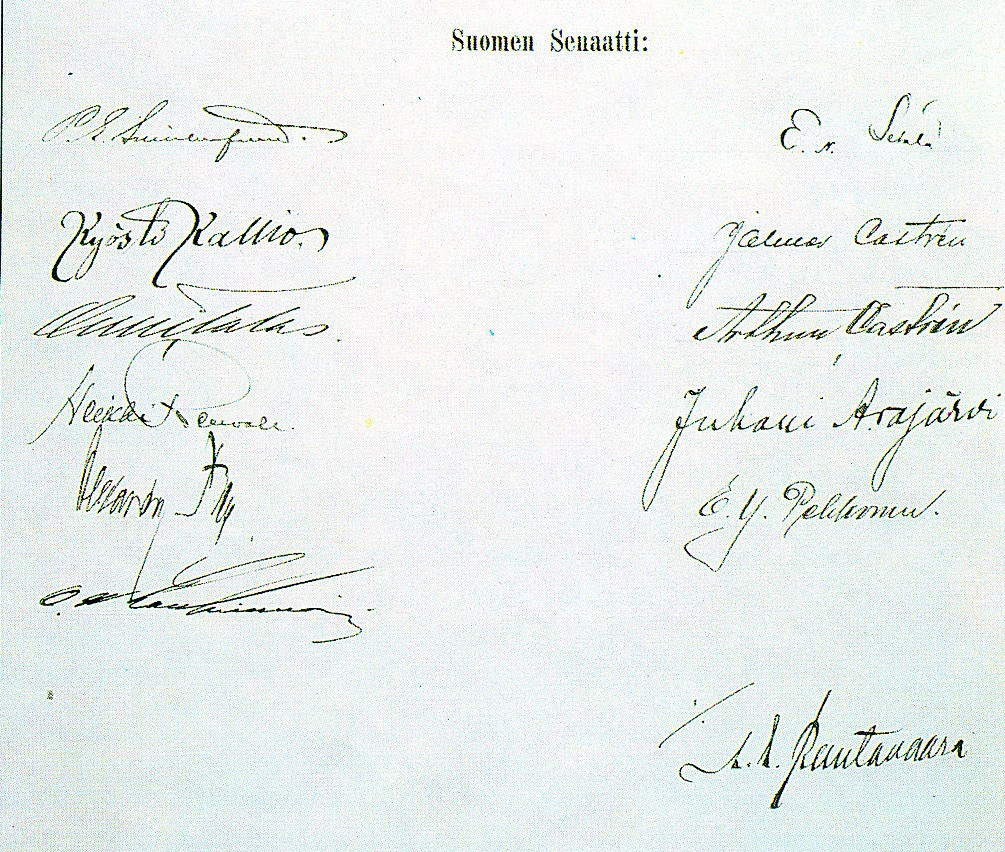 Suomen Senaatti:
P. E. Svinhufvud. E. N. Setälä
Kyösti Kallio. Jalmar Castrén
Onni Talas. Arthur Castrén
Heikki Renvall. Juhani Arajärvi
Alexander Frey. E. Y. Pehkonen.
O. W. Louhivuori
A. E. Rautavaara